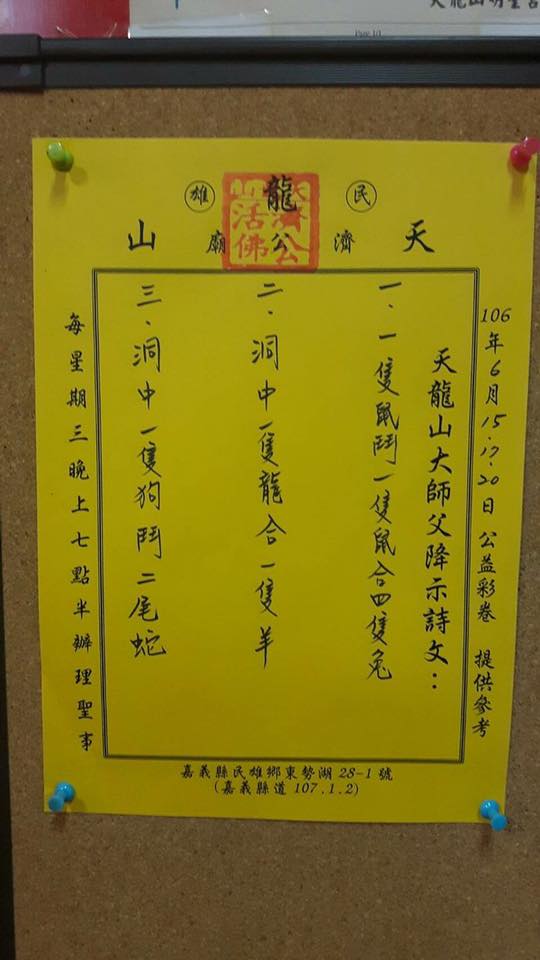 Page 1/1
民雄
天龍山
濟公廟
天龍山濟公活佛
106年6月15.17.20日 公益彩卷 提供參考
天龍山大師父降示詩文：
一、一隻鼠鬥一隻鼠合四隻兔
二、洞中一隻龍合一隻羊
三、洞中一隻狗鬥二尾蛇
每星期三晚上七點半辦理聖事
嘉義縣民雄鄉東勢湖 28-1 號
(嘉義縣道 107.1.2)